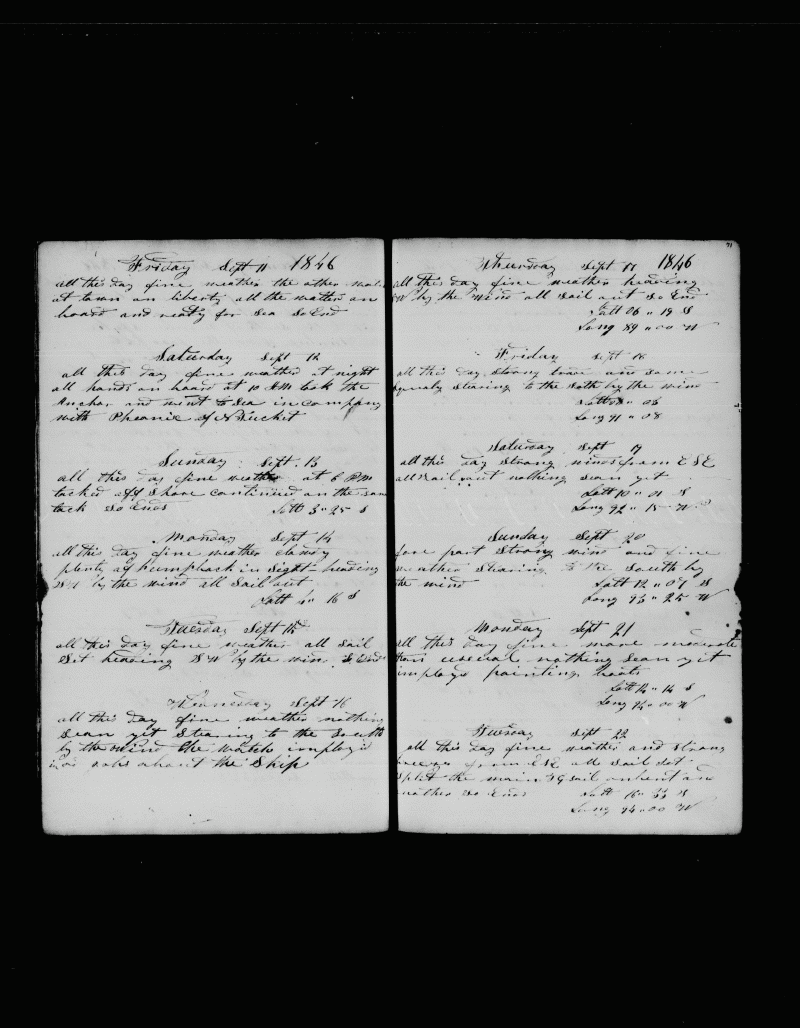 Friday Sept 11 1846
all this day fine weather the other watch
at town on liberty all the water on
board and ready for sea So End
Saturday Sept 12
all this day fine weather at night
all hands on board at 10 AM took the
Anchor and went to Sea in company
with Pheonix of N Tucket
Sunday Sept. 13
all this day fine weather at 6 PM
tacked off Shore continued on the same
tack So Ends Latt 3" 25 S
Monday Sept 14
all this day fine weather
plenty of humpback in sight heading
SW by the wind all Sail out
Latt 4" 16 S
Tuesday Sept 15
all this day fine weather all Sail
Set heading SW by the win. So Ends
Wennesday Sept 16
all this day fine weather nothing
sean yet Stearing to the South
by the wind the watch imploy'd
in jobs about the Ship
71
Thursday Sept 17 1846
all this day fine weather heading
SW by the wind all Sail out So End
Latt 06 " 19 S
Long 89 " 00 W
Friday Sept 18
all this day Strong and some
Squaly Stearing to the Soth by the wind
Latt 08 " 06
Long 91 " 08
Saturday Sept 19
all this day Strong winds from ESE
all Sail out nothing sean yet
Latt 10 " 01 S
Long 92 " 15 W
Sunday Sept 20
fore part Strong wind and fine
weather Stearing to the South by
the wind Latt 12 " 09 S
Long 93 " 25 W
Monday Sept 21
all this day fine more moderate
than useual nothing sean yit
imploye painting boats
Latt 14 " 14 S
Long 94 " 00 W
Tuesday Sept 22
all this day fine weather and strong
breezes from ESE all Sail Set
Split the main TG sail unbent and
another So Ends Latt 16 " 33 S
Long 94 " 00 W